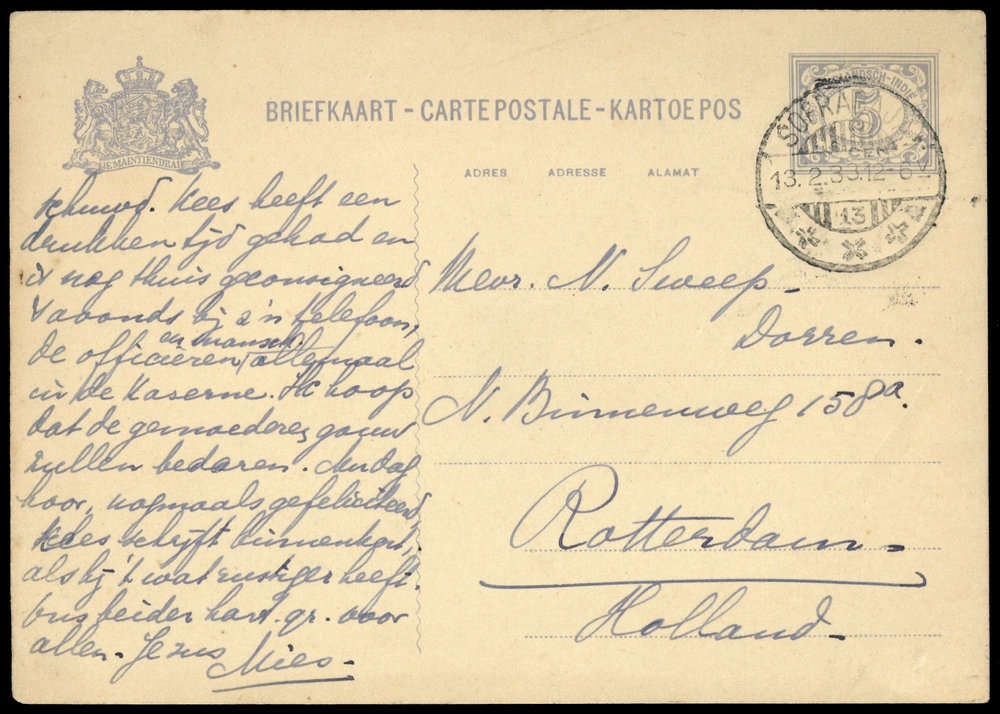 JE MAINTIENDRAI
BRIEFKAART - CARTE POSTALE - KARTOEPOS
ADRES ADRESSE ALAMAT
NEDERLANDSCH-INDIË
5
CENT
SOERABAJA
13.2.33.12-6V
13
Kees heeft een
drukken tijd gehad en
is nog thuis geconsigneerd
's avonds bij z'n telefoon,
en mansch.
de officieren allemaal
in de Kaserne. Ik hoop
dat de gemoederen gauw
zullen bedaren. Nu dag
hoor, nogmaals gefeliciteerd
Kees schrijft binnenkort,
als hij 't wat rustiger heeft.
Ons beider hart. gr. voor
allen. Je zus
Mies.
Mevr. N. Sweep-
Dorren.
N. Binnenweg 158a.
Rotterdam.
Holland.